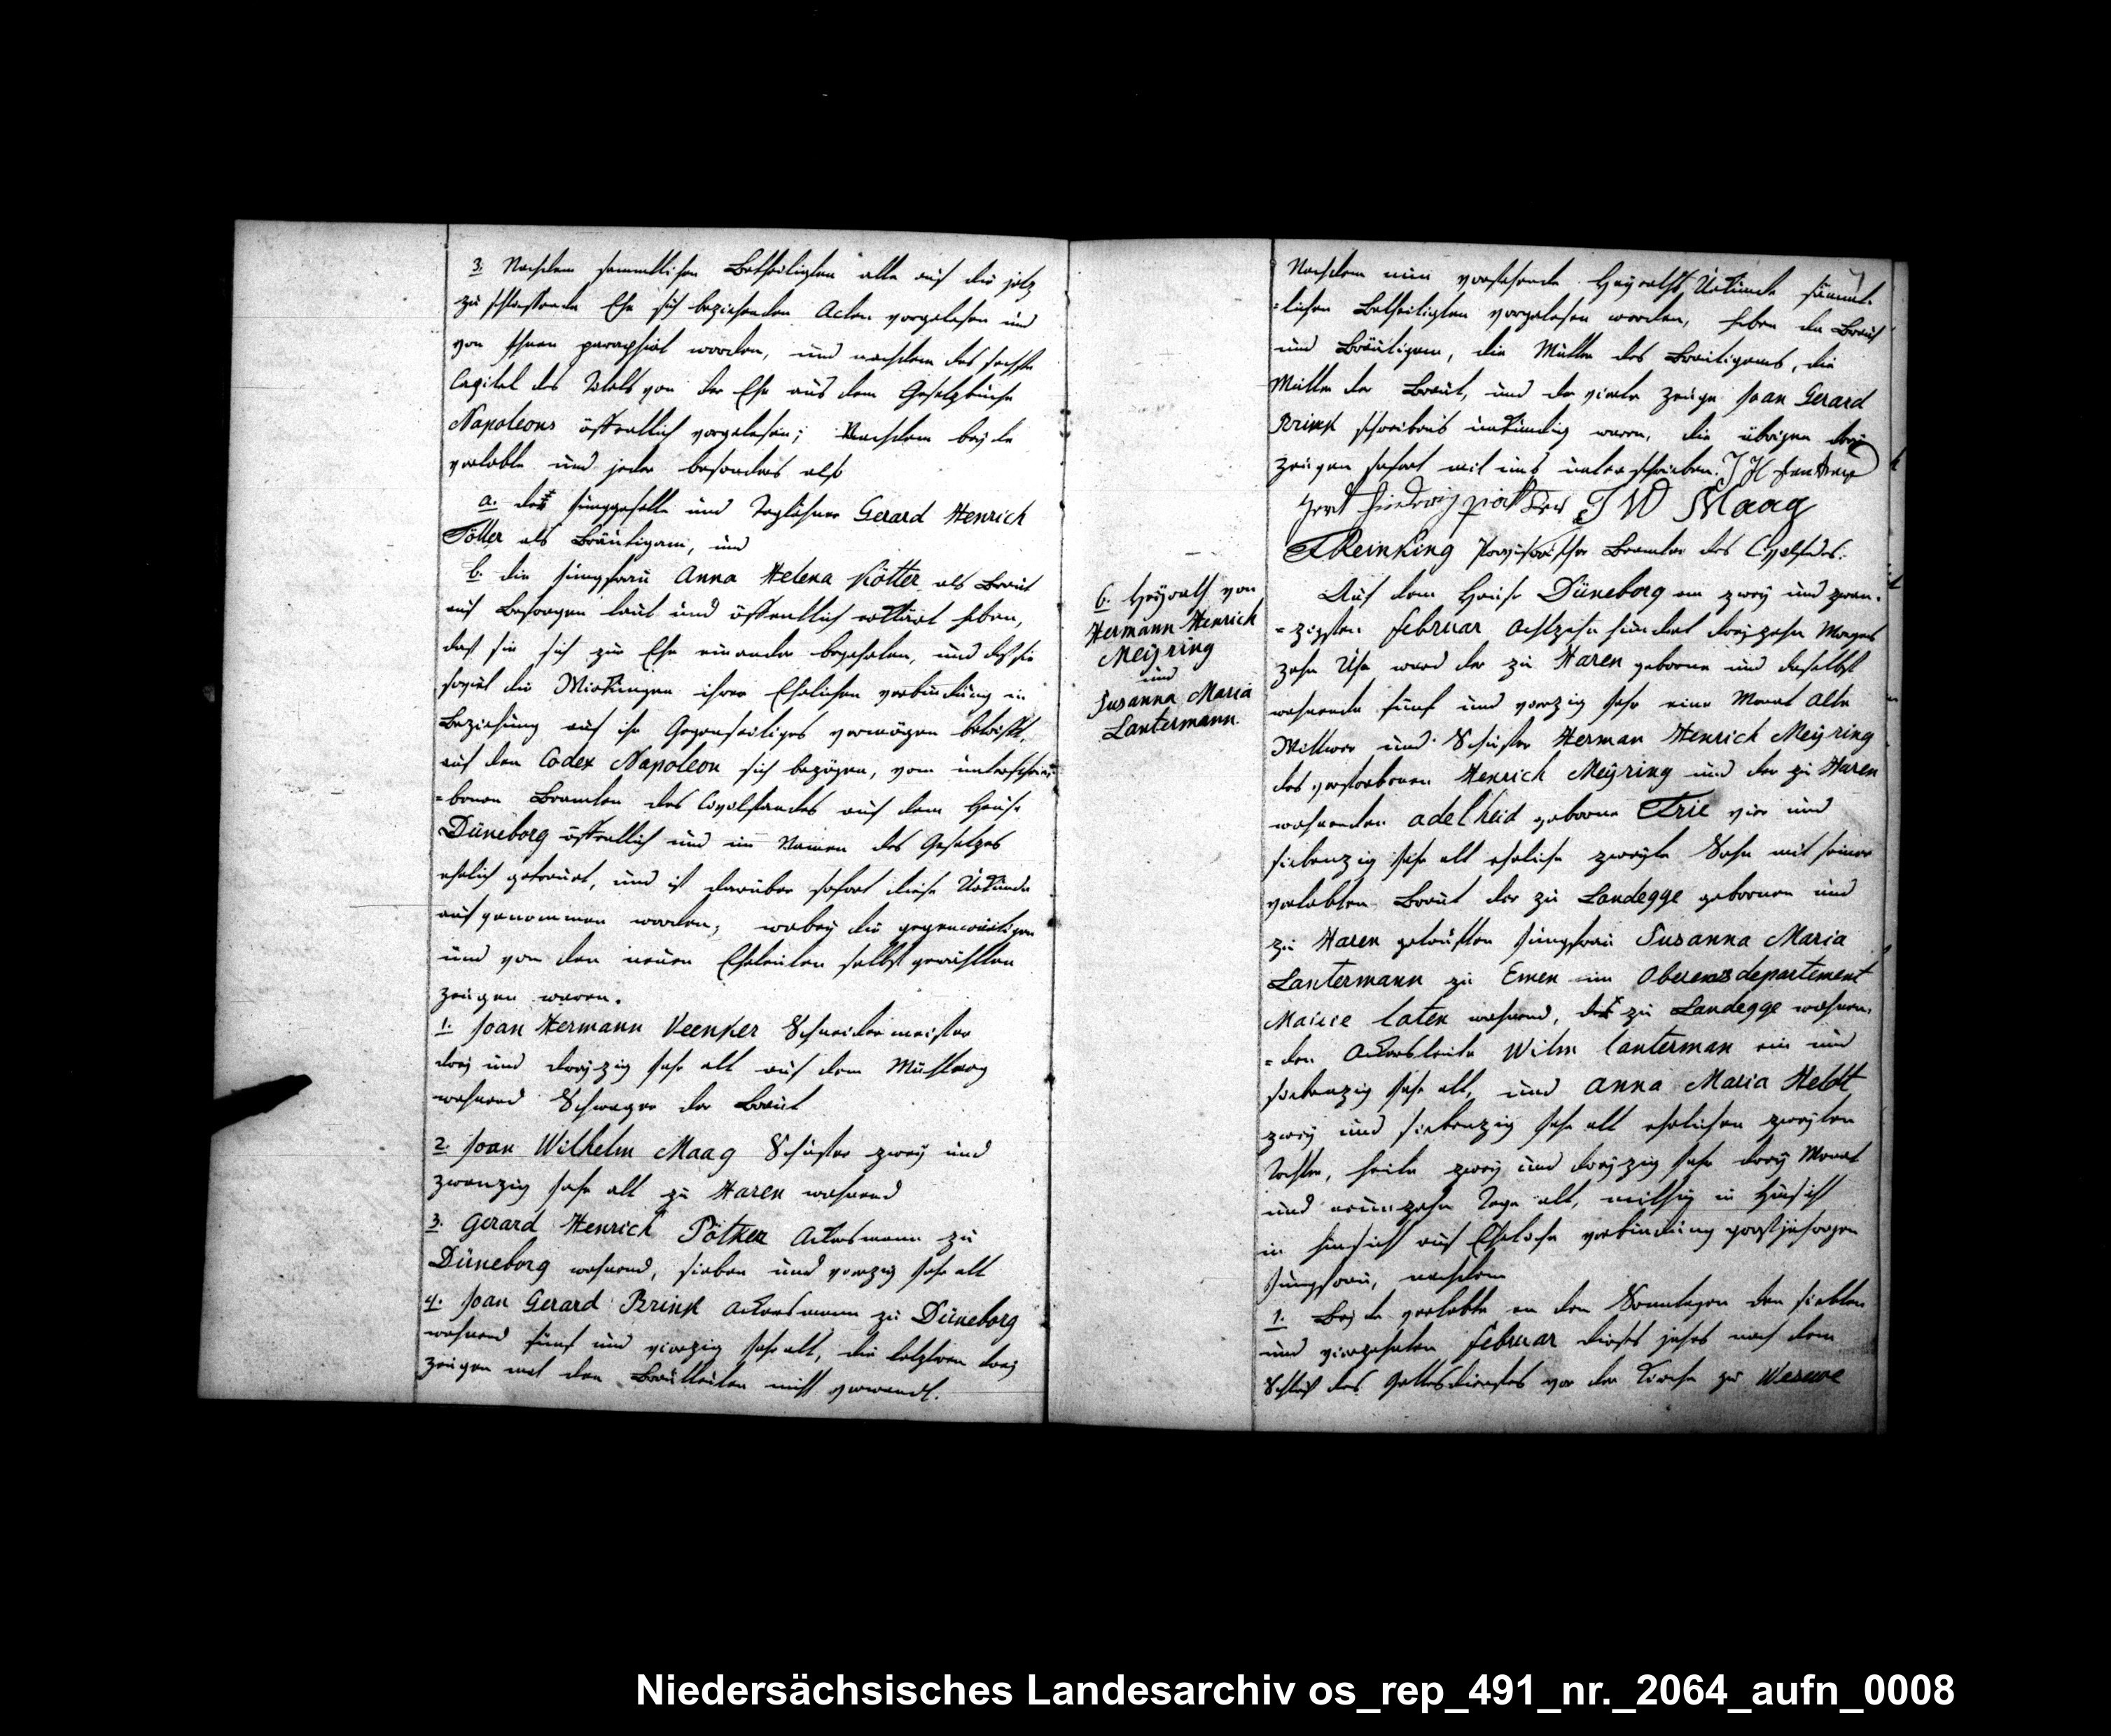 3. Nachdem sammtlichen Betheiligten alle auf die jetz
zu schliessende Ehe sich beziehenden Acten vorgelesen und
von Ihnen paraphirt worden, und nachdem das sechste
Capitel des Titels von der Ehe aus dem Gesetzbuche
Napoleons öffentlich vorgelesen; Nachdem beyde
verlobte und jeder besonders als
a. der Junggeselle und Taglöhner Gerard Henrich
Töller als Bräutigam, und
b. die Jungfrau Anna Helena Kötter als Braut
auf Befragen laut und öffentlich erklärt haben,
daß sie sich zur Ehe einander begehrten, und daß sie
soviel die Wirkungen ihrer Ehelichen verbindung in
Beziehung auf ihr Gegenseitiges vermögen betrifft,
auf den Codex Napoleon sich bezögen, vom unterschrie-
=benen Beamten des Civilstandes auf dem Hause
Düneborg öffentlich und im Namen des Gesetzes
ehelich getrauet, und ist darüber sofort diese Urkunde
aufgenommen worden, wobey die gegenwärtigen
und von den neuen Eheleuten selbst gewählten
zeugen waren.
1. Joan Hermann Veenker Schneidermeister
drey und dreyzig Jahr alt auf dem
wohnend Schwager der Braut
2. Joan Wilhelm Maag Schuster zwey und
zwanzig Jahr alt zu Haren wohnend
3. Gerard Henrich Pötker Ackersmann zu
Düneborg wohnend, sieben und vierzig Jahr alt
4. Joan Gerard Brink Ackersmann zu Düneborg
wohnend fünf und vierzig Jahr alt, die letztern drey
zeugen mit den Brautleuten nicht verwandt.
7
Nachdem nun vorstehende Heyraths Urkunde sämmt-
=lichen Betheiligten vorgelesen worden, haben die Braut
und Bräutigam, die Mutter des Bräutigams, die
Mutter der Braut, und der vierte zeuge Joan Gerard
Brink schreibens unkundig waren, die übrigen drey
zeugen sofort mit uns unterschrieben. J H Veenker
J W Maag
Reinking Provisorischer Beamter des Civilstandes.
6. Heyrath von
Hermann Henrich
Meyring
und
Susanna Maria
Lantermann
Auf dem Hause Düneborg am zwey und zwan-
=zigsten Februar Achtzehn hundert dreyzehn Morgens
zehn Uhr ward der zu Haren geborne und daselbst
wohnende fünf und vierzig Jahr einen Monat Alte
Wittwer und Schuster Herman Henrich Meyring
des verstorbenen Henrich Meyring und der zu Haren
wohnenden Adelheid geborne Trie vier und
siebenzig Jahr alt eheliche zweyte Sohn mit seiner
verlobten Braut der zu Landegge gebornen und
zu Haren getauften Jungfrau Susanna Maria
Lantermann zu Emen im Oberemsdepartement
Mairie Laten wohnend, der zu Landegge wohnen-
=den Ackersleute Wilm Lanterman ein und
siebenzig Jahr alt, und Anna Maria Heldt
zwey und siebenzig Jahr alt ehelichen zweyten
Tochter, heute zwey und dreyzig Jahr drey Monat
und neunzehn Tage alt, mithin in Hinsicht
in Hinsicht auf Eheliche verbindung
Jungfrau, nachdem
1. Beyde verlobte an den Sonntagen den siebten
und vierzehnten Februar dieses jahrs nach dem
Schluß des Gottesdienstes vor der Kirche zu Wesuwe